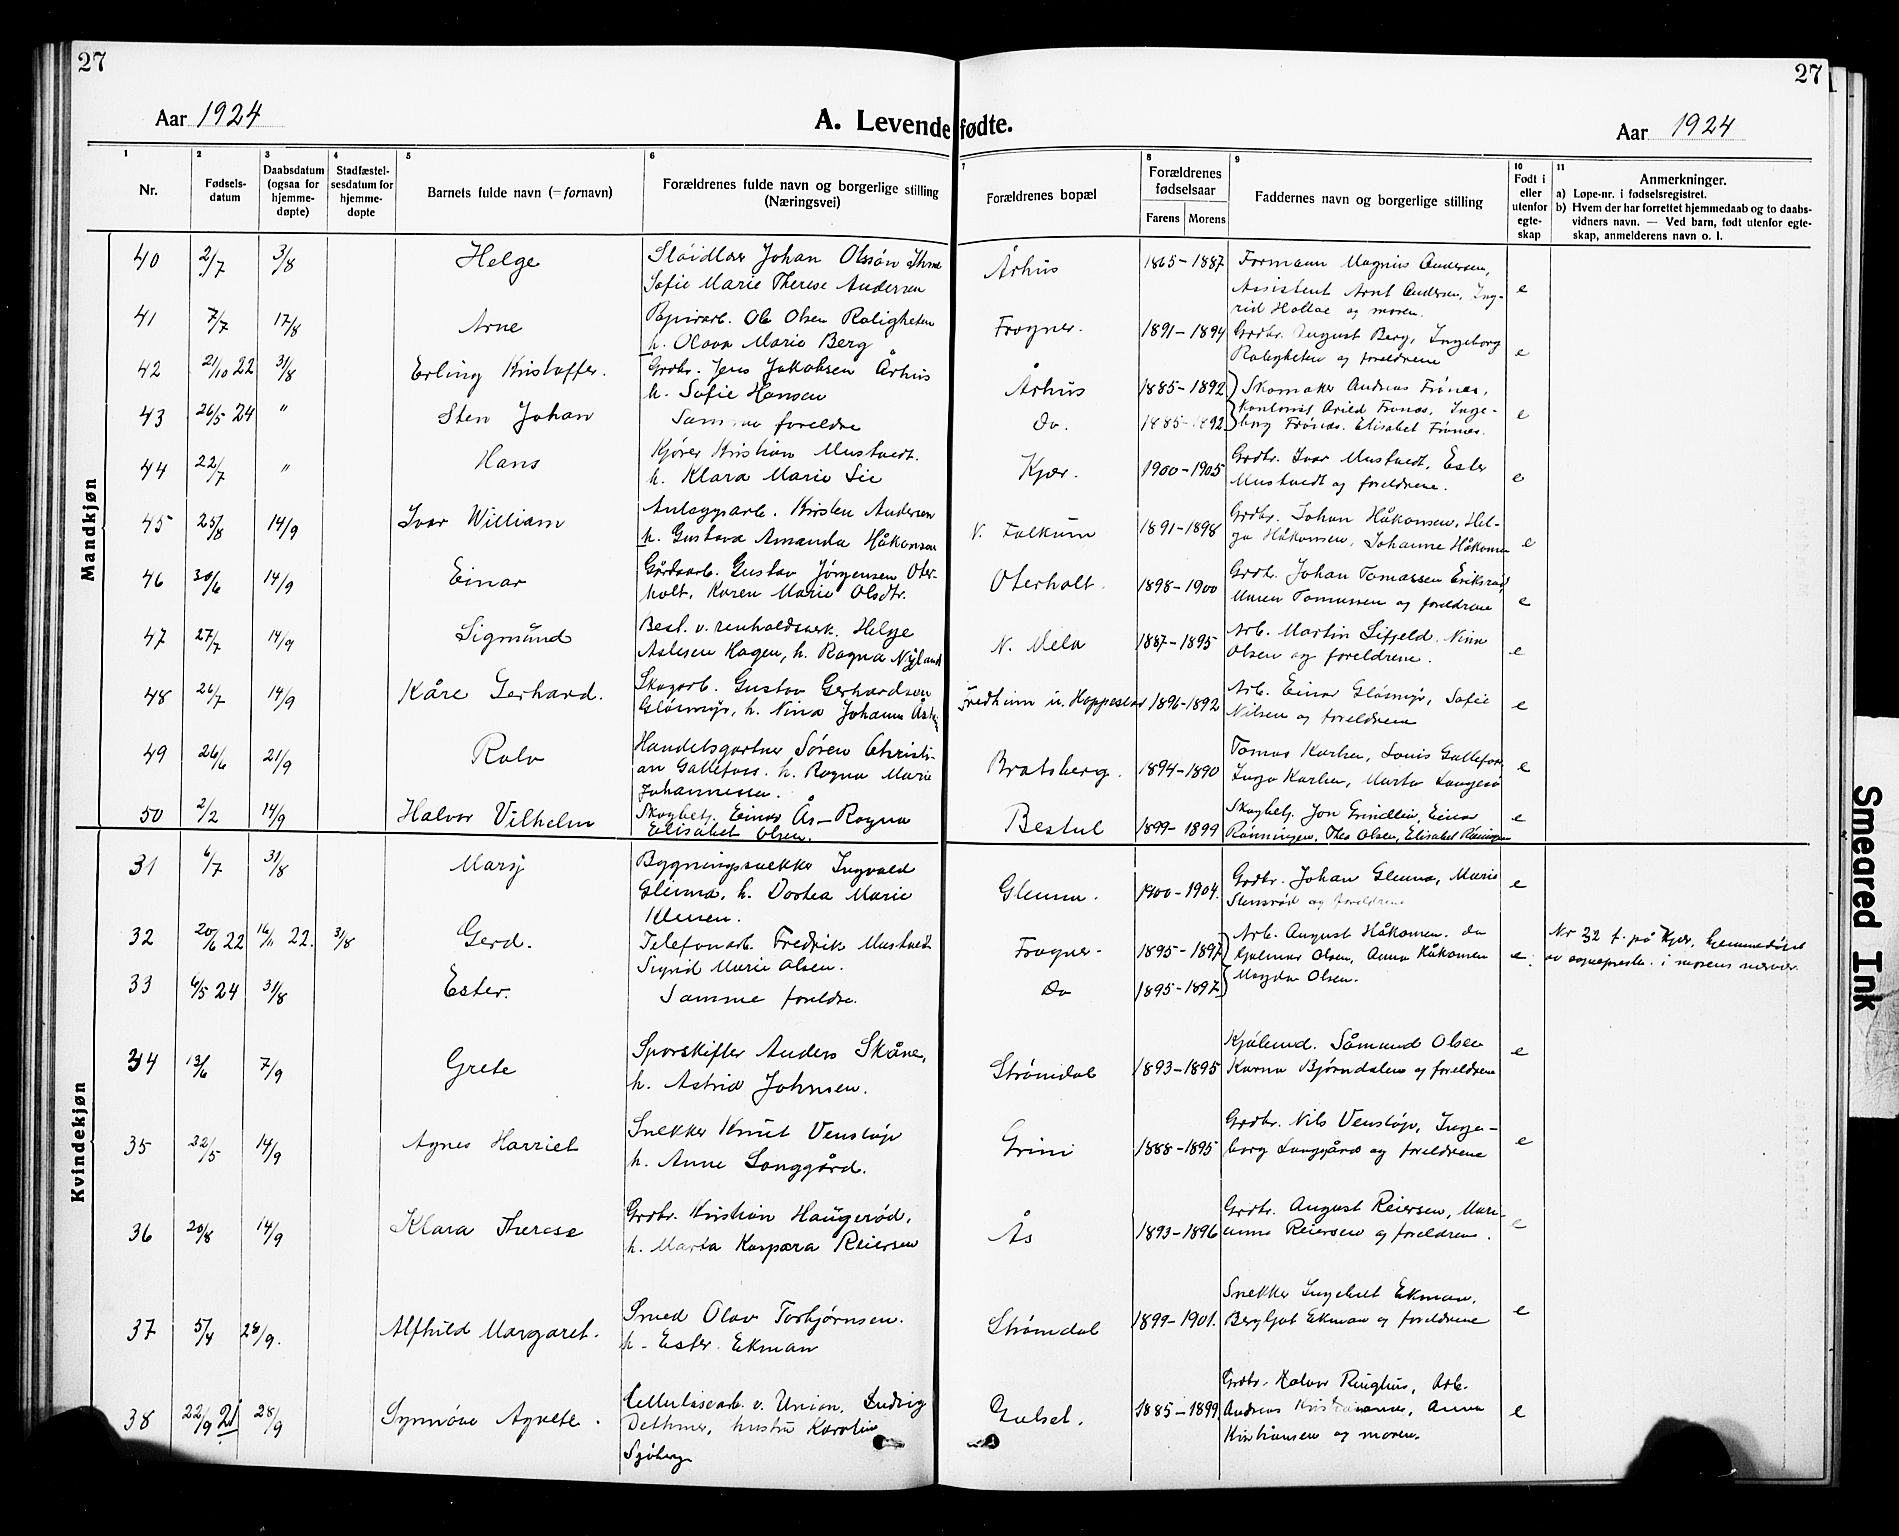 27
27
Aar 1924
A. Levendefødte.
Aar 1924
1
2
3
4
5
6
7
8
9
10
11
Nr.
Fødsels-
datum
Daabsdatum
(ogsaa for
hjemme-
døpte)
Stadfæstel-
sesdatum for
hjemme-
døpte
Barnets fulde navn (= fornavn)
Forældrenes fulde navn og borgerlige stilling
(Næringsvei)
Forældrenes bopæl
Forældrenes
fødselsaar
Farens
Morens
Faddernes navn og borgerlige stilling
Født i
eller
utenfor
egte-
skap
Anmerkninger.
a) Løpe-nr. i fødselsregistret.
b) Hvem der har forrettet hjemmedaab og to daabs-
vidners navn. — Ved barn, født utenfor egte-
skap, anmelderens navn o. l.
Mandkjøn
40 2/7 3/8 Helge
Sløidlær Johan Olssøn
Sofie Marie Therese Andersen
Århus 1865-1887
Formann Magnus Andersen,
Assistent Arnt Andersen, Ing-
rid Hollae og moren. e
41 7/7 17/8 Arne
Papirarb. Ole Olsen Roligheten
h. Olava Marie Berg
Frogner. 1891-1894
Grdbr. August Berg, Ingeborg
Roligheten og foreldrene e
42 21/10 22 31/8 Erling Kristoffer.
Grdbr. Jens Jakobsen Århus
h. Sofie Hansen
Århus 1885-1892
Skomaker Andreas Frönes,
43 26/5 24 " Sten Johan
Samme foreldre
Do. 1885-1892
Kontorist Arild Frönes, Inge-
borg Frönes. Elisabet Frönes. e
44 22/7 " Hans
Kjører Kristian Mustvedt.
h. Klara Marie Lie
Kjær. 1900-1905
Grdbr. Ivar Mustvedt, Ester
Mustvedt og foreldrene. e
45 25/8 14/9 Ivar William
Anlægsarb. Kirsten Andersen
h. Gustava Amanda Håkonsen
N. Falkum 1891-1898
Grdbr. Johan Håkonsen, Hel-
ga Håkonsen, Johanne Håkonsen e
46 30/6 14/9 Einar
Gårdsarb. Gustav Jörgensen Oter-
holt, Karen Marie Olsdtr.
Oterholt. 1898-1900
Grdbr. Johan Tomassen Eriksrød
Maren Tomassen og foreldrene e
47 27/7 14/9 Sigmund
Best. v. renholdsverk. Helge
Aslesen Hagen, h. Ragna Nyland
N. Mela 1887-1895
Arb. Martin Lifjeld. Nina
Olsen og foreldrene. e
48 26/7 14/9 Kåre Gerhard.
Skogarb. Gustav Gerhardsen
Glåsmyr, h. Nina Johanne
Fredheim u. Hoppestad 1896-1892
Arb. Einar Glåsmyr, Sofie
Nilsen og foreldrene e
49 26/6 21/9 Rolv
Handelsgartner Sören Christi-
an Gallefoss. h. Ragna Marie
Johannessen.
Bratsberg. 1894-1890
Tomas Karlsen, Louis Gallefoss
Inga Karlsen, Marta Langesæ e
50 2/2 14/9 Halvor Vilhelm
Skogbetj. Einar Ås- Ragna
Elisabet Olsen.
Bestul 1899-1899
Skogbetj. Jon Grindlia, Einar
Rönningen, Thea Olsen, Elisabet Rönningen e
Kvindekjøn
31 6/7 31/8 Mary
Bygningssnekker Ingvald
Glenna, h. Dortea Marie
Glenna. 1900-1904.
Grdbr. Johan Glenna, Marie
Stensrød og foreldrene e
32 20/6 22 16/11 22. 31/8 Gerd.
Telefonarb. Fredrik Mustvedt
Sigrid Marie Olsen.
Frogner. 1895-1897
Arb. August Håkonsen. do
Hjalmar Olsen, Anna Håkonsen
Magda Olsen. e.
Nr 32 f. på Kjær, hjemmedöpt
av sognepresten i morens nærvær.
33 6/5 24 31/8 Ester.
Samme foreldre.
Do 1895-1897
34 13/6 7/9 Grete
Sporskifter Anders Skåne,
h. Astrid Johnsen.
Strömdal 1893-1895
Kjölemd. Såmund Olsen
Karna Bjørndalen og foreldrene e
35 22/5 14/9 Agnes Harriet
Snekker Knut Venstøp
h. Anne Langgård.
Grini 1888-1895
Grdbr. Nils Venstøp, Inge-
borg Langgård og foreldrene e
36 20/8 14/9 Klara Therese
Grdbr. Kristian Haugerød,
h. Marta Kaspara Reiersen
Ås 1893-1896
Grdbr. August Reiersen, Mari-
anne Reiersen og foreldrene. e
37 5/4 28/9. Alfhild Margaret.
Smed Olav Torbjørnsen.
h. Ester Ekman
Strömdal 1899-1901.
Snekker Ingebret Ekman,
Bergljot Ekman og foreldrene e
38 22/9 21 28/9 Synnöve Agnete.
Cellulosearb. v. Union. Ludvig
Dethmer, hustru Karoline
Sjöberg
Gulset. 1885-1899
Grdbr. Halvor Ringhus, Arb.
Andreas Kristiansen, Anna
Kristiansen og moren. e
Smeared Ink